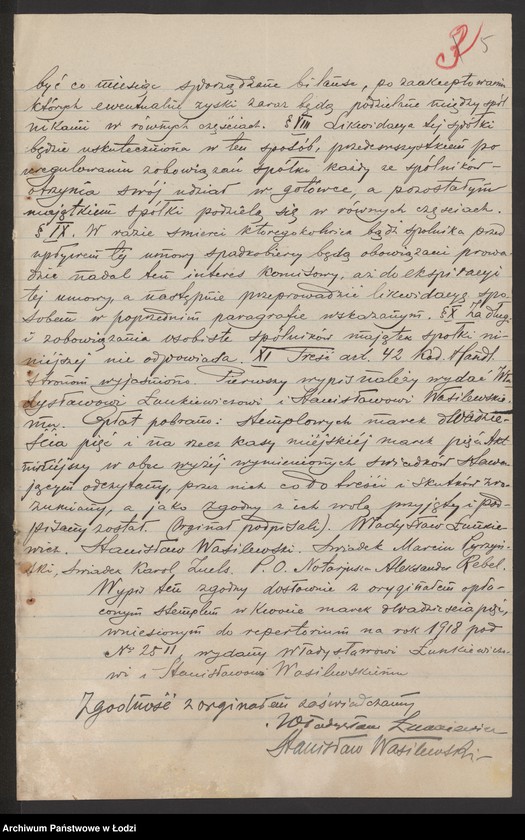 3 5
być co miesiąc sporządzane bilanse, po zaakceptowaniu
których ewentualne zyski zaraz będą podzielone między spól
nikami w równych częściach. § VIII Likwidacya tej spółki
będzie uskuteczniona w ten sposób, przedewszystkiem po
uregulowaniu zobowiązań spółki każdy ze spólników
otrzyma swój udział w gotówce, a pozostałym
majątkiem spółki podzielą się w równych częściach.
§ IX. W razie śmierci któregokolwiek bądź spólnika przed
upływem tej umowy spadkobiercy będą obowiązani prowa
dzić nadal ten interes komisowy, aż do ekspiracyi
tej umowy, a następnie przeprowadzić likwidacyę spo
sobem w poprzednim paragrafie wskazanym. § X Za długi
i zobowiązania osobiste spólników majątek spółki ni-
niejszej nie odpowiada. XI Treść art. 42 Kod. Handl.
stronom wyjaśniono. Pierwszy wypis należy wydać Wła
dysławowi Lunkiewiczowi i Stanisławowi Wasilewskie-
mu. Opłat pobrano: stemplowych marek dwadzie-
ścia pięć i na rzecz kasy miejskiej marek pięć. Akt
niniejszy w obec wyżej wymienionych świadków stawa-
jącym odczytany, przez nich co do treści i skutków zro-
zumiany, a jako zgodny z ich wolą przyjęty i pod-
pisany został. (Orginał podpisali). Władysław Lunkie-
wicz. Stanisław Wasilewski. Świadek Marcin Pyrzyń-
ski, świadek Karol P. O. Notarjusza Aleksander Rebel.
Wypis ten zgodny dosłownie z oryginałem opła-
conym stemplem w kwocie marek dwadzieścia pięć,
wniesionym do repertorium na rok 1918 pod
№ 2511, wydany Władysławowi Lunkiewiczo-
wi i Stanisławowi Wasilewskiemu
Zgodność z orginałem zaświadczamy
Władysław Lunkiewicz
Stanisław Wasilewski
Archiwum Państwowe w Łodzi